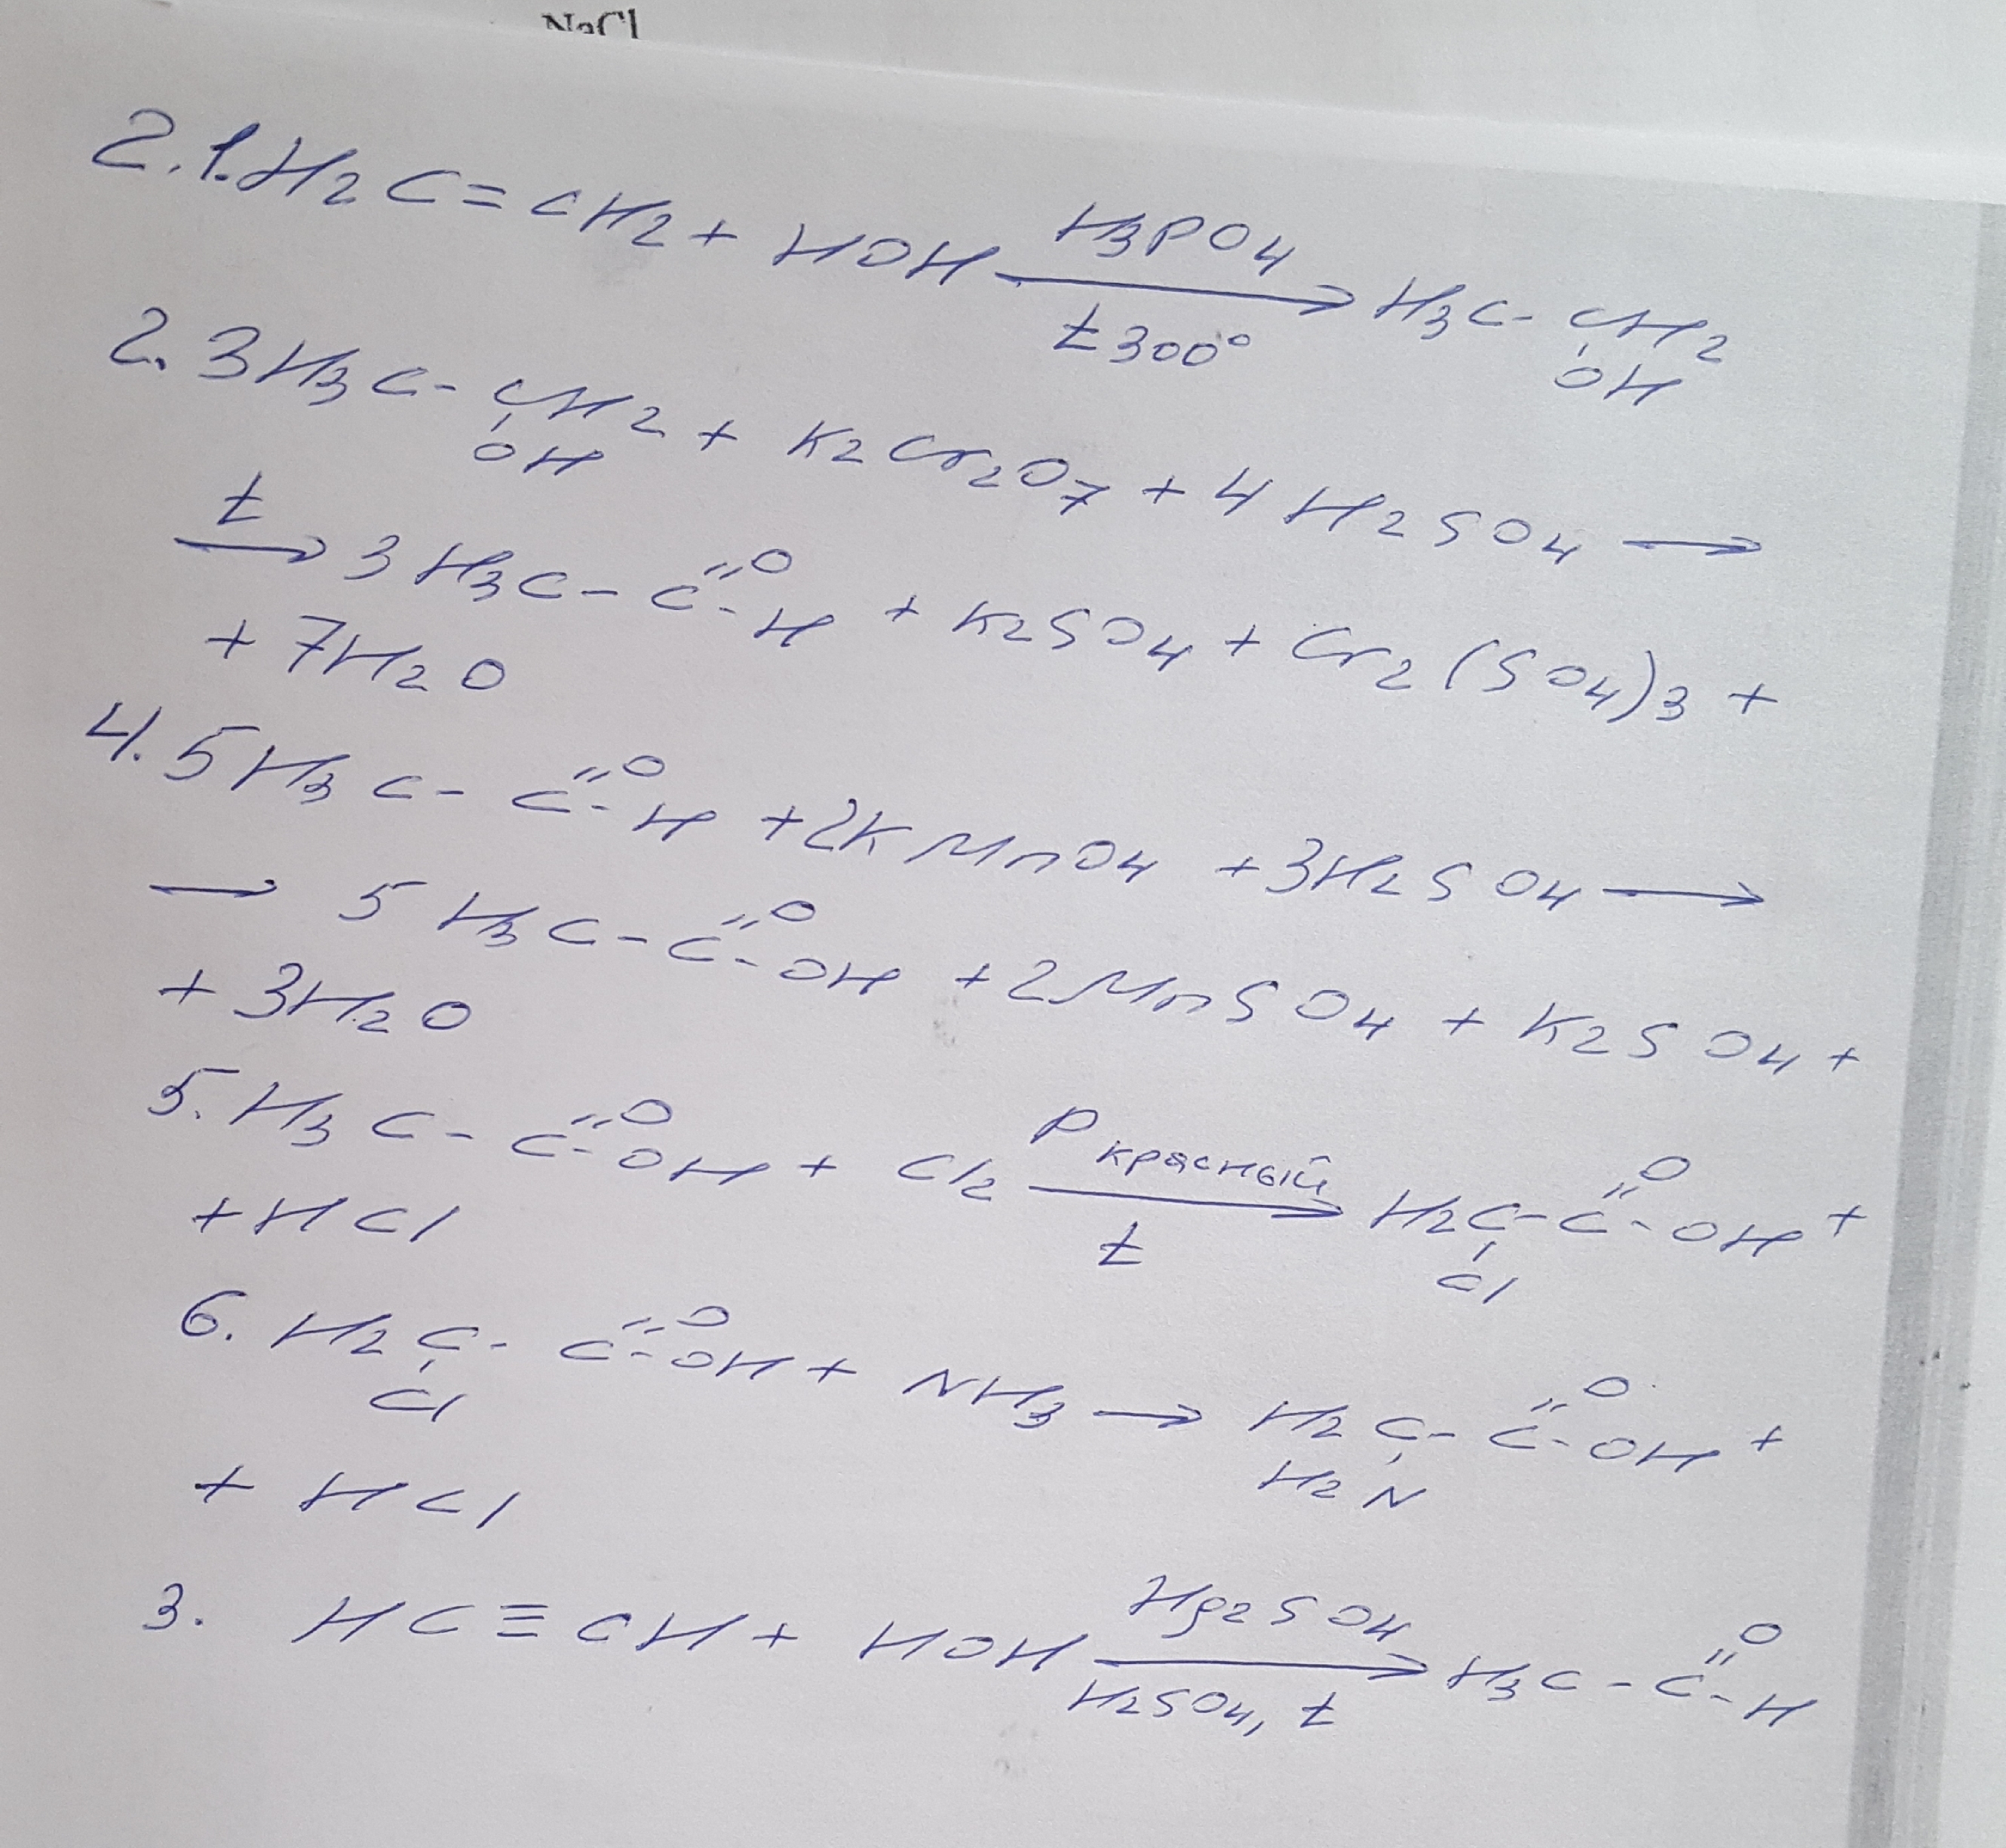 NaCl
2.1. H2C=CH2 + HOH H3PO4 → t 300° H3C-CH2
OH
2. 3H3C-CH2 + K2Cr2O7 + 4H2SO4 →
OH
t → 3H3C-C=O-H + K2SO4 + Cr2(SO4)3 +
+ 7H2O
4. 5H3C-C=O-H + 2KMnO4 + 3H2SO4 →
→ 5H3C-C=O-OH + 2MnSO4 + K2SO4 +
+ 3H2O
5. H3C-C=O-OH + Cl2 P красный → t H2C-C=O-OH +
Cl
+ HCl
6. H2C-C=O-OH + NH3 → H2C-C=O-OH +
Cl H2N
+ HCl
3. HC≡CH + HOH Hg2SO4 → H2SO4, t H3C-C=O-H